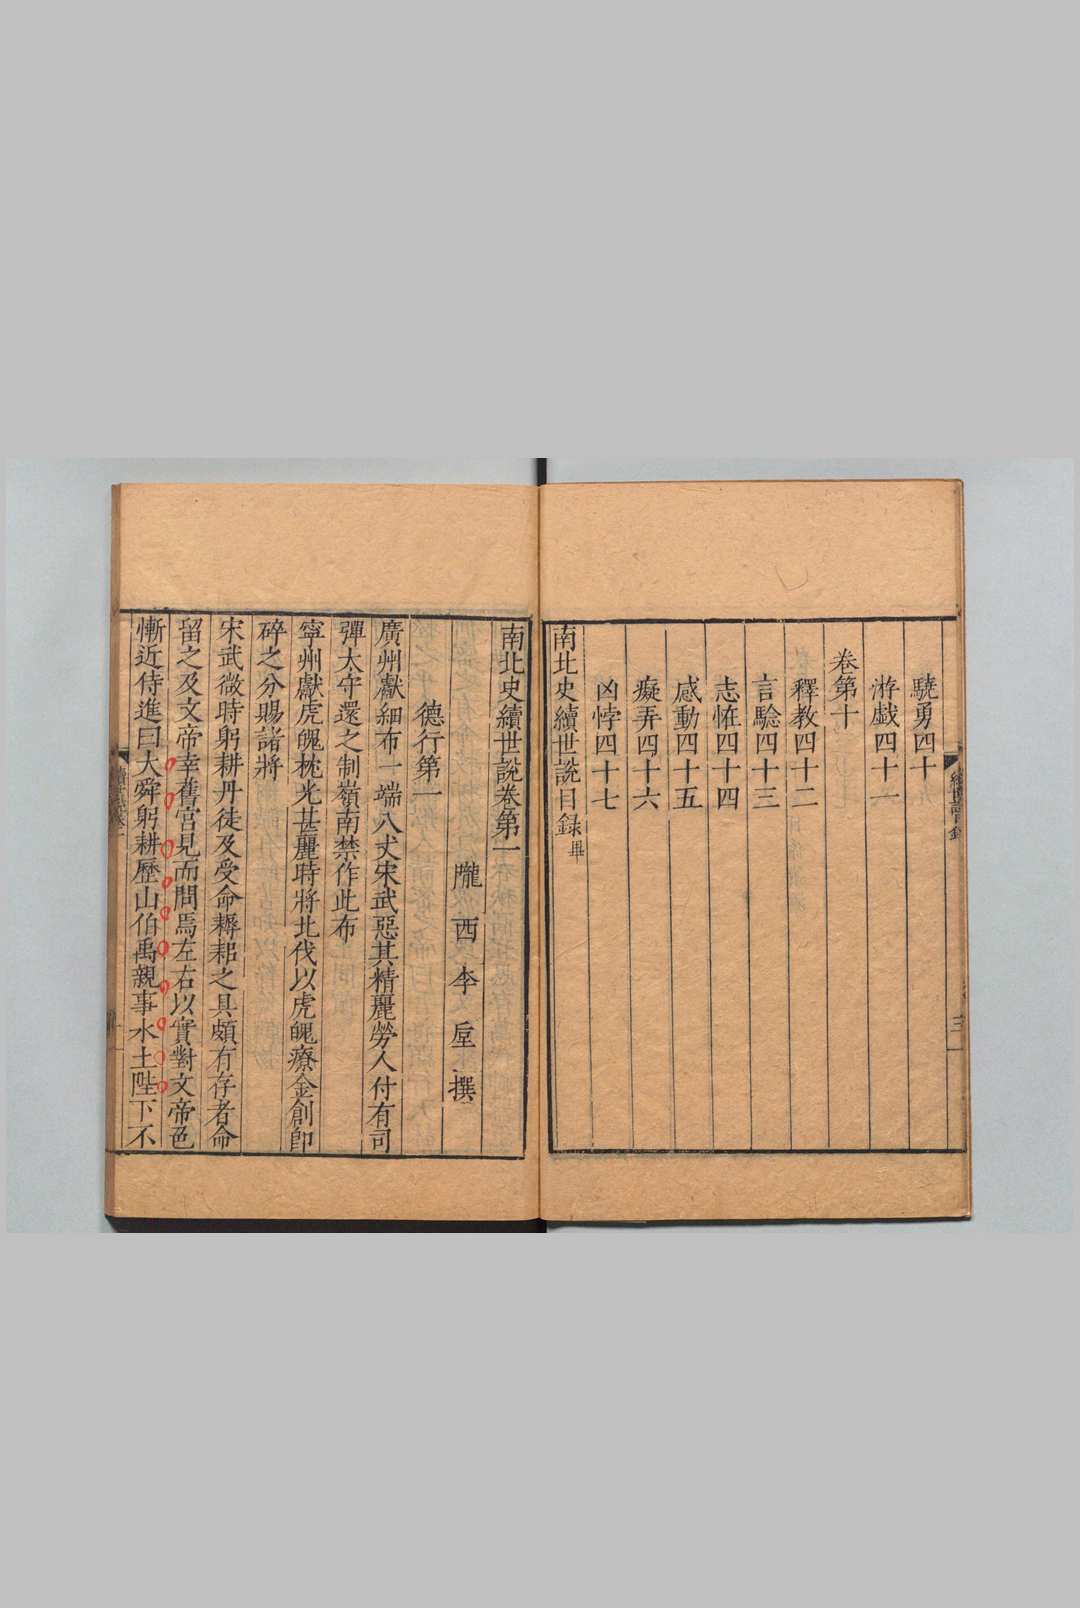 驍勇四十
游戱四十一
卷第十
釋教四十二
言驗四十三
志恠四十四
感動四十五
癡弄四十六
凶悖四十七
南北史續世說目錄畢
南北史續世說卷第一
隴西李垕撰
德行第一
廣州獻細布一端八丈宋武惡其精麗勞人付有司
彈太守還之制嶺南禁作此布
寧州獻虎魄枕光甚麗時將北伐以虎魄療金創卽
碎之分賜諸將
宋武微時躬耕丹徒及受命耨耜之具頗有存者命
留之及文帝幸舊宮見而問焉左右以實對文帝色
慚近侍進曰大舜躬耕歷山伯禹親事水土陛下不